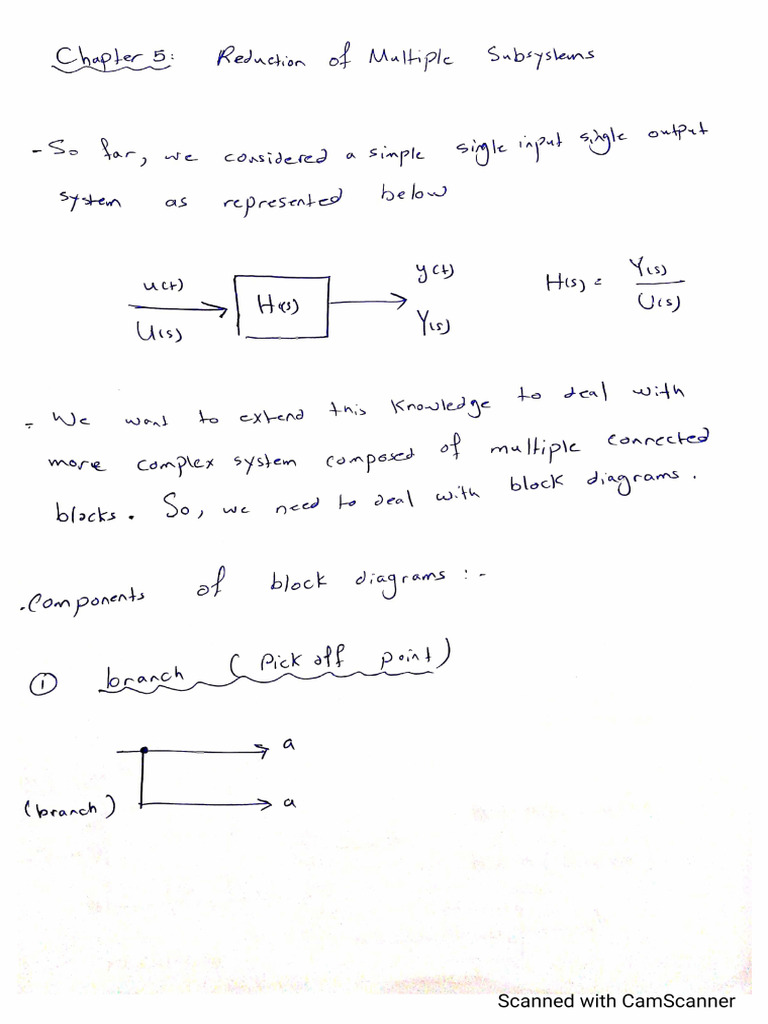 Chapter 5: Reduction of Multiple Subsystems
- So far, we considered a simple single input single output
system as represented below
u(t)
U(s)
H(s)
y(t)
Y(s)
H(s) = Y(s) / U(s)
- We want to extend this knowledge to deal with
more complex system composed of multiple connected
blocks. So, we need to deal with block diagrams.
. Components of block diagrams : -
① branch ( Pick off point )
a
(branch)
a
Scanned with CamScanner